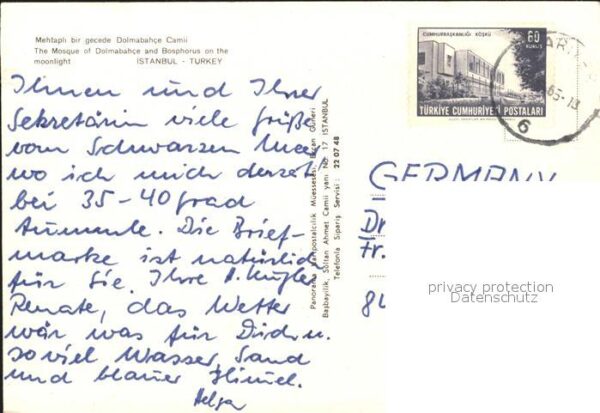 Mehtaplı bir gecede Dolmabahçe Camii
The Mosque of Dolmabahçe and Bosphorus on the
moonlight ISTANBUL - TURKEY
Ihnen und Ihrer
Sekretärin viele Grüße
vom Schwarzen Meer
wo ich mich derzeit
bei 35-40 Grad
tummle. Die Brief-
marke ist natürlich
für Sie. Ihre A. Kugler
Renate, das Wetter
wär was für Dich u.
so viel Wasser, Sand
und blauer Himmel.
Helga
Panorama Kartpostalcılık Müessesesi Ercan Güneri
Başbayilik, Sultan Ahmet Camii yanı No 17 ISTANBUL
Telefonla Sipariş Servisi : 22 07 48
CUMHURBAŞKANLIĞI KÖŞKÜ
60
KURUŞ
TÜRKİYE CUMHURİYETİ POSTALARI
65-13
6
GERMANY
Dr
Fr.
privacy protection
Datenschutz